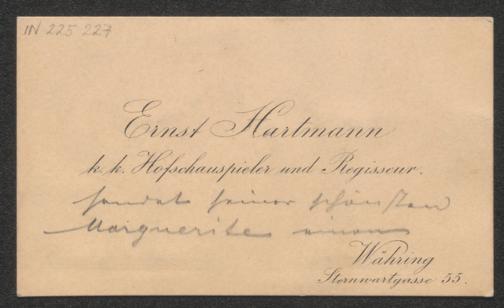 IN 225 227
Ernst Hartmann
k. k. Hofschauspieler und Regisseur.
sendet seiner schönsten
Marguerite einen
Währing
Sternwartgasse 55.